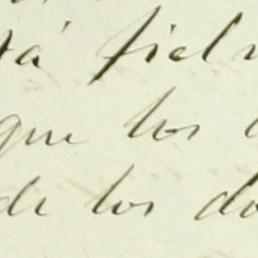 tá fiel
que los
de los do